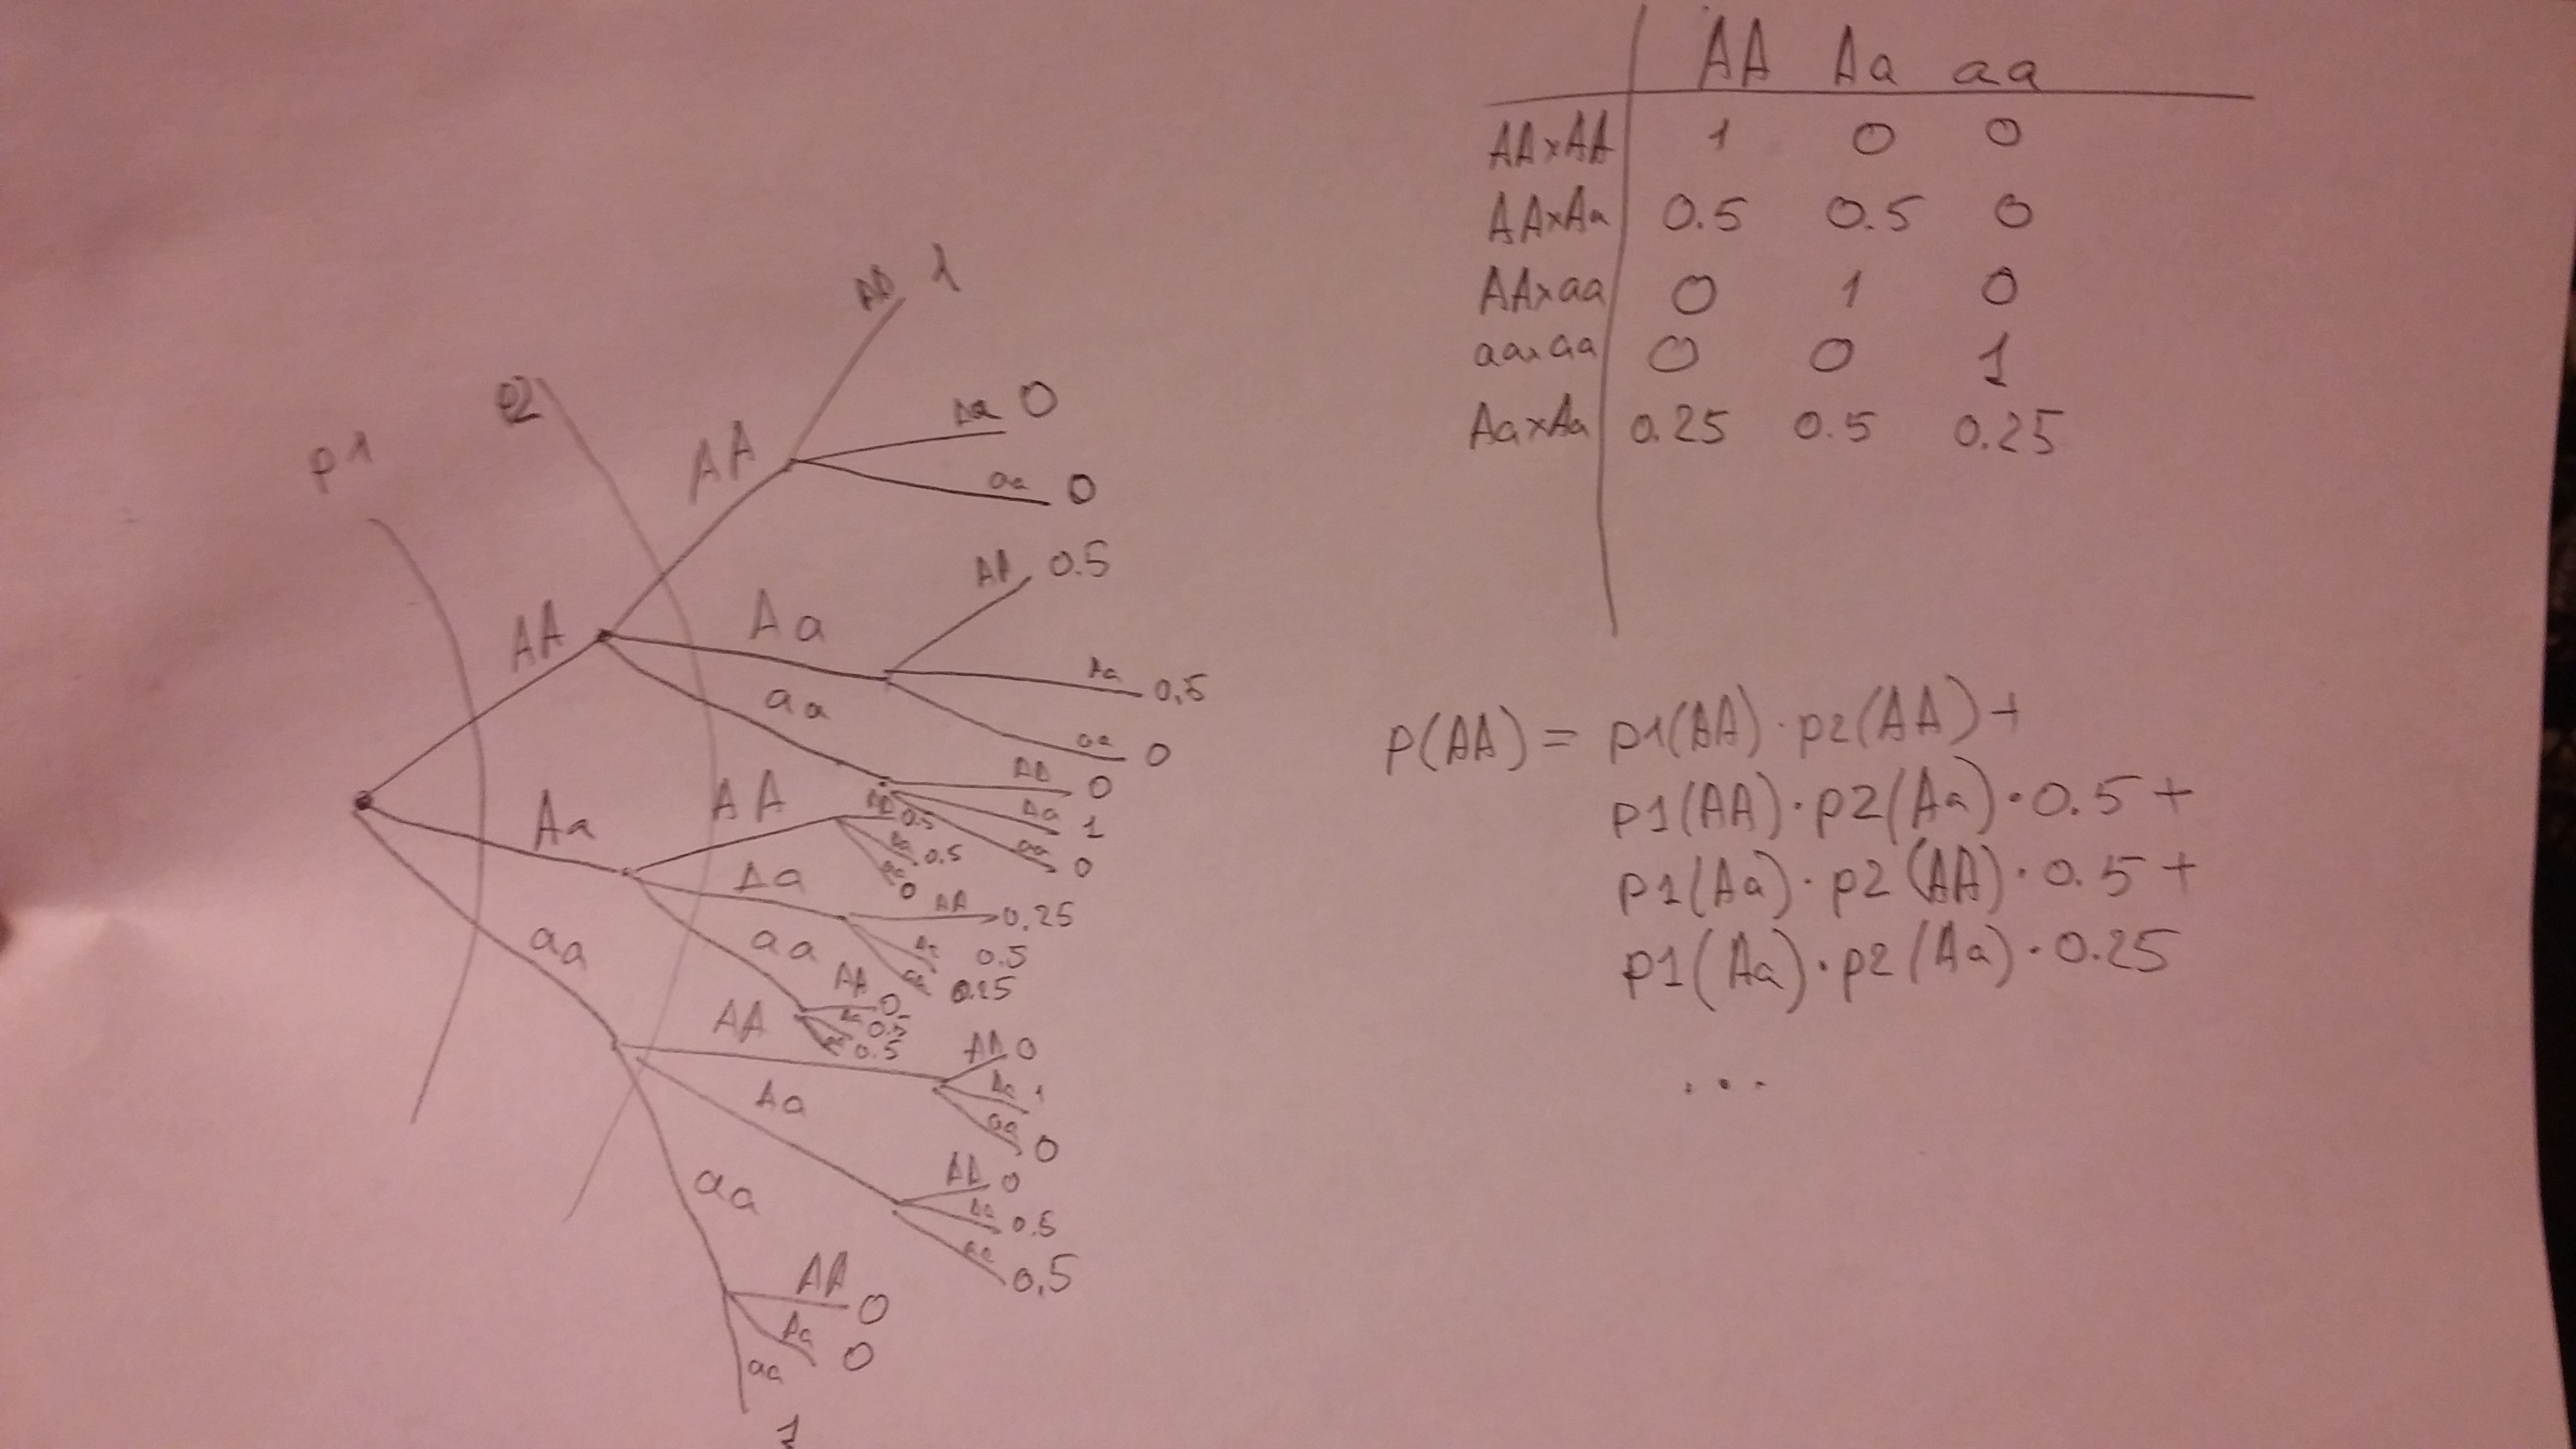 p1
p2
AA 1
Aa 0
aa 0
AA
AA 0.5
Aa 0.5
aa 0
Aa
AA 0
Aa 1
aa 0
aa
AA
AA 0.5
Aa 0.5
aa 0
AA
Aa
AA 0.25
Aa 0.5
aa 0.25
aa
AA 0
Aa 0.5
aa 0.5
Aa
AA
AA 0
Aa 1
aa 0
Aa
AA 0
Aa 0.5
aa 0.5
aa
aa
AA 0
Aa 0
aa
1
AA Aa aa
AAxAA 1 0 0
AAxAa 0.5 0.5 0
AAxaa 0 1 0
aaxaa 0 0 1
AaxAa 0.25 0.5 0.25
p(AA) = p1(AA) · p2(AA) +
p1(AA) · p2(Aa) · 0.5 +
p1(Aa) · p2(AA) · 0.5 +
p1(Aa) · p2(Aa) · 0.25
...